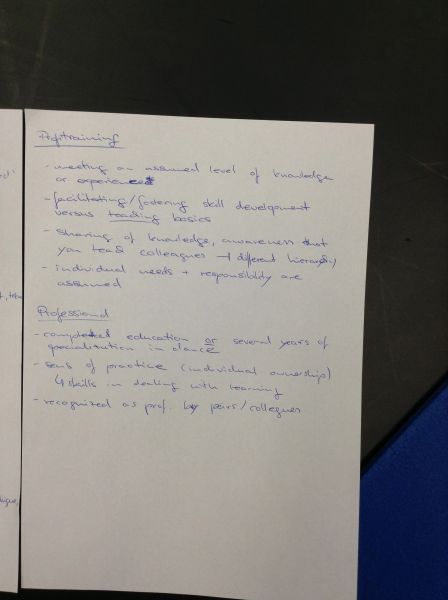 Proftraining
- meeting on assumed level of knowledge
or experience
- facilitating/fostering skill development
versus teaching basics
- sharing of knowledge, awareness that
you teach colleagues → different hierarchy
- individual needs + responsibility are
assumed
Professional
- completed education or several years of
specialisation in dance
- sens of practice (individual ownership)
↳ skills in dealing with learning
- recognized as prof. by pears/collegues